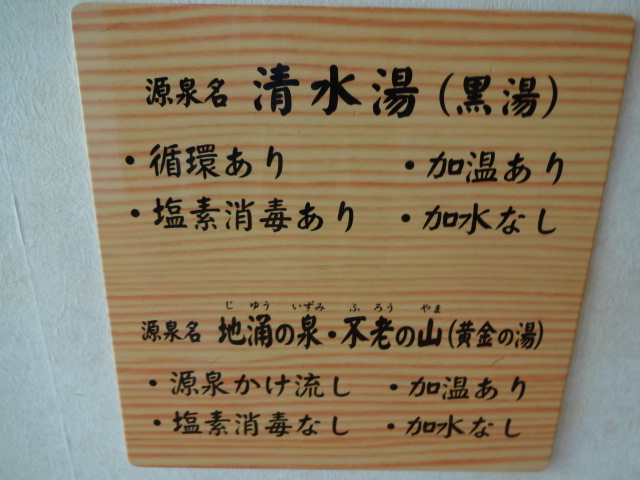 源泉名 清水湯(黒湯)
・循環あり ・加温あり
・塩素消毒あり ・加水なし
じ ゆう いずみ ふ ろう やま
源泉名 地涌の泉・不老の山(黄金の湯)
・源泉かけ流し ・加温あり
・塩素消毒なし ・加水なし